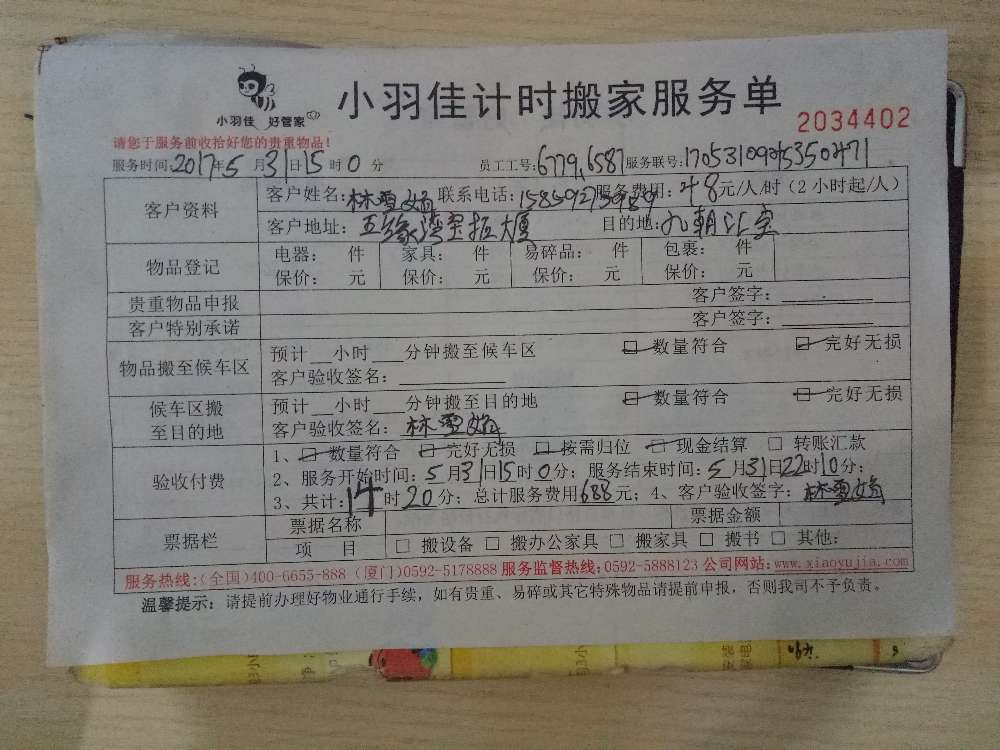 小羽佳 好管家
小羽佳计时搬家服务单
2034402
请您于服务前收拾好您的贵重物品!
服务时间:2017年5月31日15时0分 员工工号:6779,6587 服务联号:
客户资料
客户姓名:林雪娟 联系电话: 服务费用:48元/人/时(2小时起/人)
客户地址:五缘湾 大厦 目的地:
物品登记
电器: 件 家具: 件 易碎品: 件 包裹: 件
保价: 元 保价: 元 保价: 元 保价: 元
贵重物品申报 客户签字:
客户特别承诺 客户签字:
物品搬至候车区
预计__小时___分钟搬至候车区 数量符合 完好无损
客户验收签名:
候车区搬至目的地
预计__小时___分钟搬至目的地 数量符合 完好无损
客户验收签名:林雪娟
验收付费
1、数量符合 完好无损 按需归位 现金结算 □ 转账汇款
2、服务开始时间:5月31日15时0分;服务结束时间:5月31日22时10分;
3、共计:14时20分;总计服务费用688元;4、客户验收签字:林雪娟
票据栏
票据名称 票据金额
项 目 □ 搬设备 □ 搬办公家具 □ 搬家具 □ 搬书 □ 其他:
服务热线:(全国)400-6655-888 (厦门)0592-5178888 服务监督热线:0592-5888123 公司网站:www.xiaoyujia.com
温馨提示:请提前办理好物业通行手续,如有贵重、易碎或其它特殊物品请提前申报,否则我司不予负责。